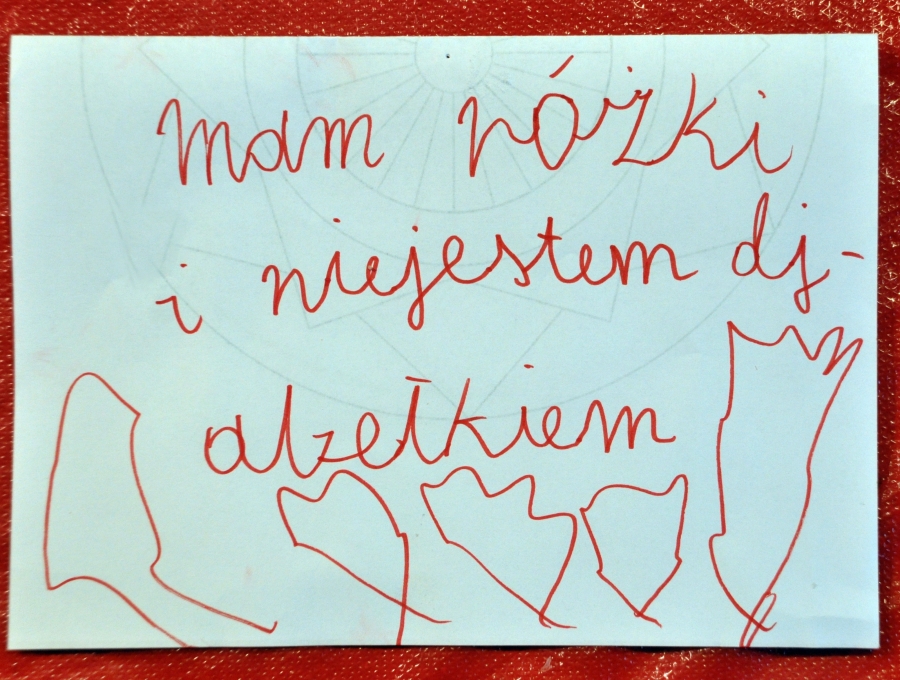 mam różki
i niejestem dj-
abełkiem